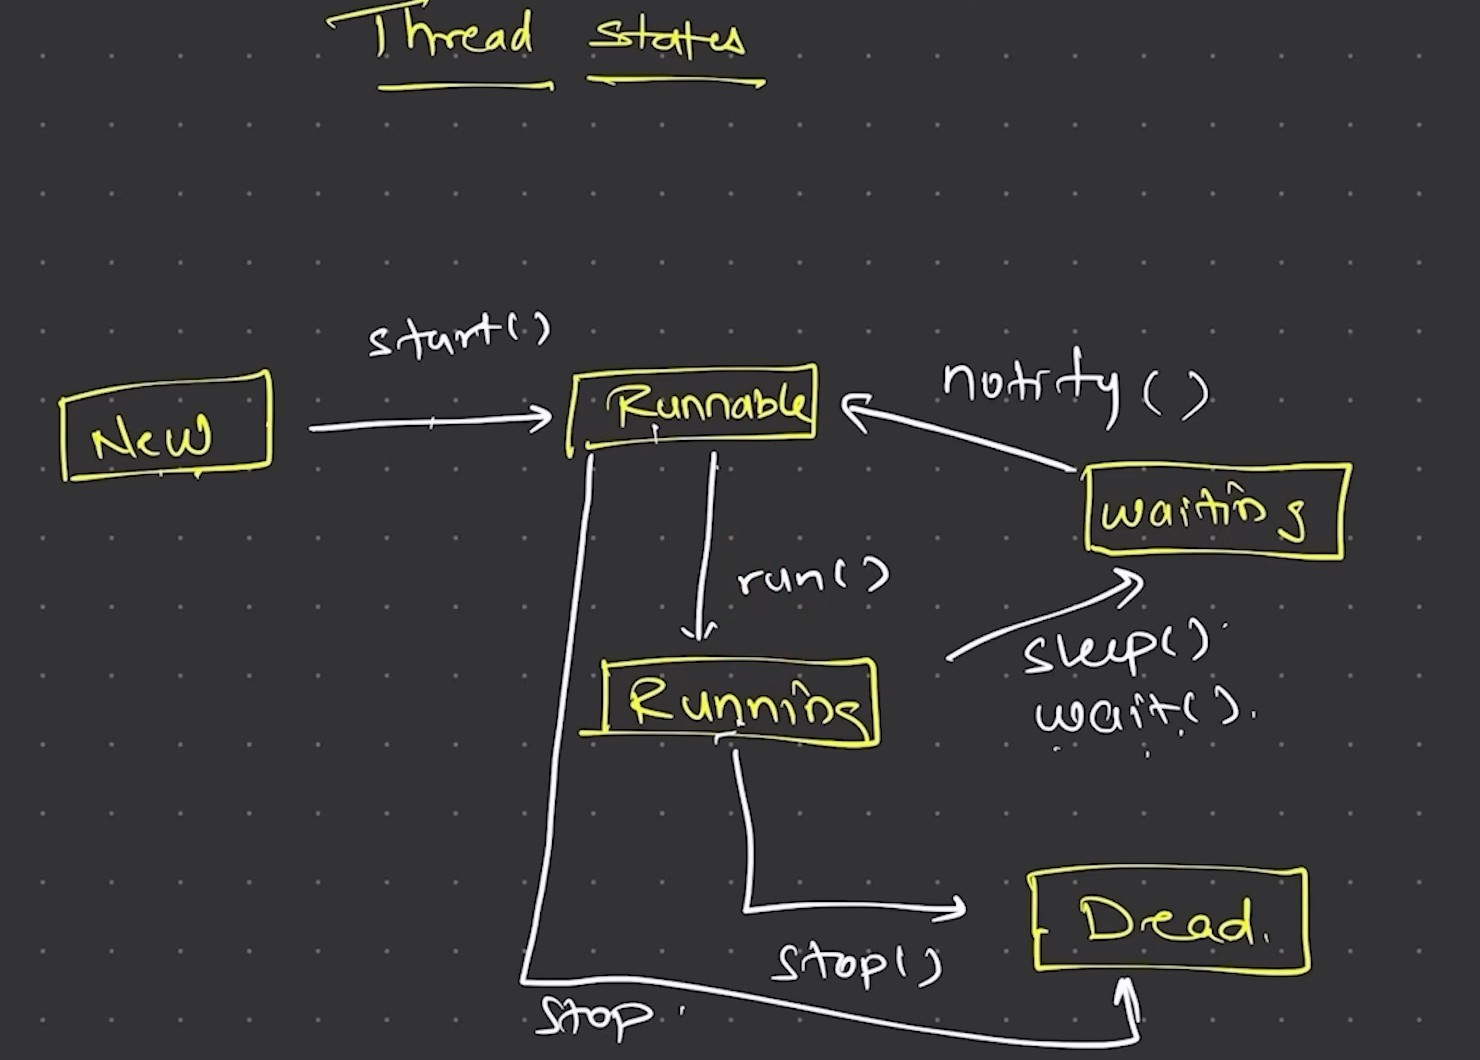 Thread States
start()
New
Runnable
notify()
Waiting
run()
Running
sleep()
wait().
Dead.
stop()
stop